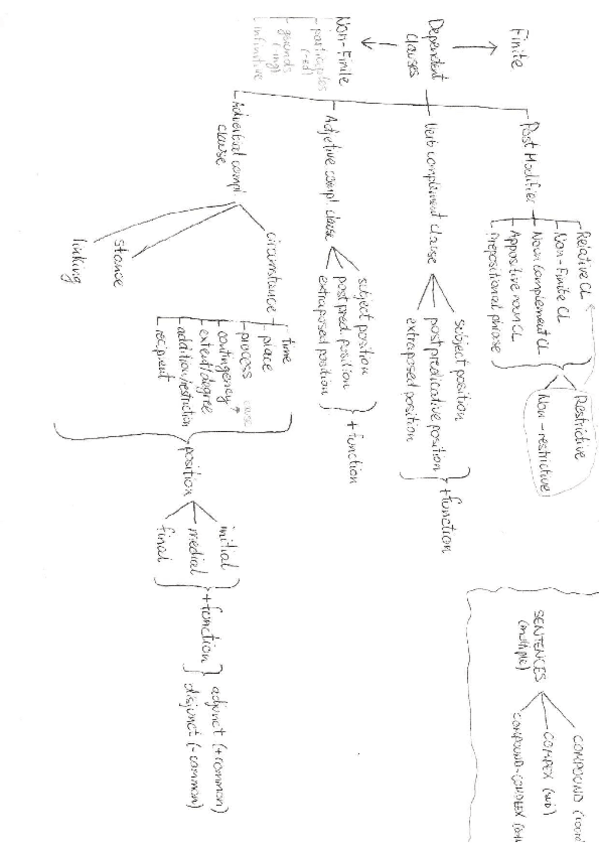 Finite
Dependent
clauses
Non-Finite
participles
(-ed)
gerunds
(-ing)
infinitive
Post Modifier
Relative CL
Non-Finite CL
Noun complement CL
Appositive noun CL
Prepositional phrase
Restrictive
Non-restrictive
Verb complement clause
subject position
post predicative position
extraposed position
+ function
Adjective compl. clause
subject position
post pred position
extraposed position
+ function
Adverbial compl
clause
circumstance
time
place
process
contingency
extent/degree
addition/restriction
recipient
stance
linking
position
initial
medial
final
+ function
adjunct (+ common)
disjunct (- common)
SENTENCES
(multiple)
COMPOUND
COMPEX (sub)
COMPOUND-COMPLEX